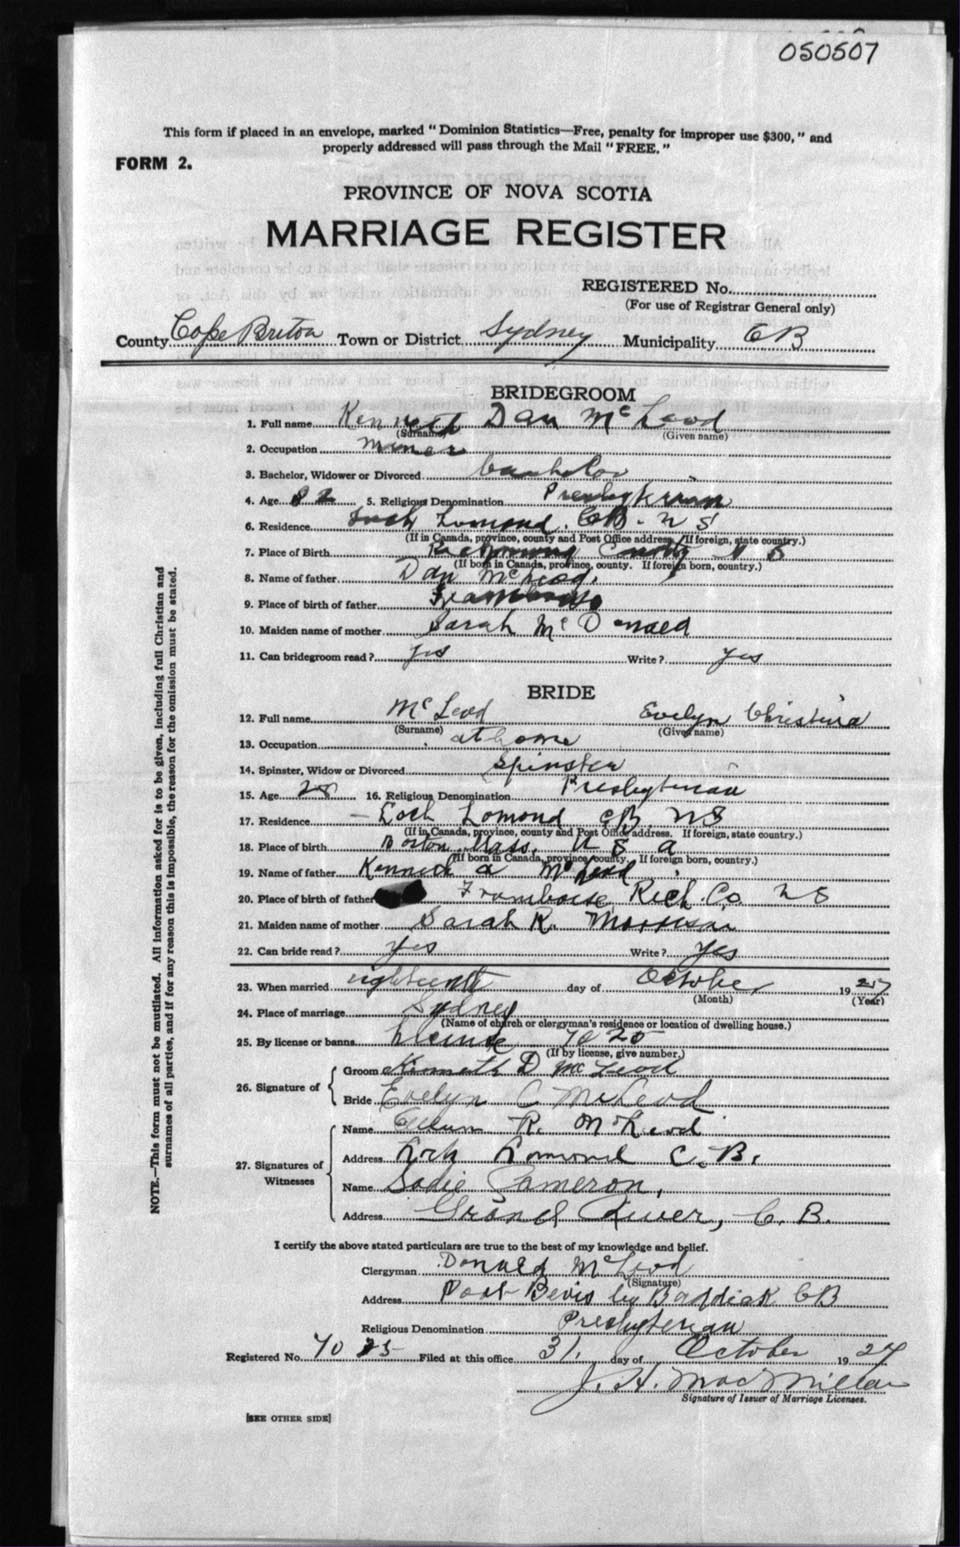 050507
This form if placed in an envelope, marked "Dominion Statistics—Free, penalty for improper use $300," and
properly addressed will pass through the Mail "FREE."
FORM 2.
PROVINCE OF NOVA SCOTIA
MARRIAGE REGISTER
REGISTERED No.
(For use of Registrar General only)
County Cape Breton Town or District Sydney Municipality CB
BRIDEGROOM
1. Full name Kenneth Dan McLeod
(Surname) (Given name)
2. Occupation miner
3. Bachelor, Widower or Divorced bachelor
4. Age 5. Religious Denomination Presbyterian
6. Residence Loch Lomond. CB. NS
(If in Canada, province, county and Post Office address. If foreign, state country.)
7. Place of Birth Richmond County N S
(If born in Canada, province, county. If foreign born, country.)
8. Name of father Dan McLeod.
9. Place of birth of father Framboise
10. Maiden name of mother Sarah McDonald
11. Can bridegroom read? yes Write? yes
BRIDE
12. Full name McLeod Evelyn Christina
(Surname) (Given name)
13. Occupation at home
14. Spinster, Widow or Divorced Spinster
15. Age 28 16. Religious Denomination Presbyterian
17. Residence Loch Lomond CB. NS
(If in Canada, province, county and Post Office address. If foreign, state country.)
18. Place of birth Boston, Mass. U S A
(If born in Canada, province, county. If foreign born, country.)
19. Name of father Kenneth A McLeod
20. Place of birth of father Framboise Rich. Co NS
21. Maiden name of mother Sarah K. Morrison
22. Can bride read? yes Write? yes
23. When married eighteenth day of October 1927
(Month) (Year)
24. Place of marriage Sydney
(Name of church or clergyman's residence or location of dwelling house.)
25. By license or banns License 7025
(If by license, give number.)
26. Signature of
Groom Kenneth D McLeod
Bride Evelyn C McLeod
27. Signatures of Witnesses
Name R. McLeod
Address Loch Lomond C.B.
Name Sadie Cameron,
Address Grand River, C.B.
I certify the above stated particulars are true to the best of my knowledge and belief.
Clergyman Donald McLeod
(Signature)
Address Port Bevis by Baddeck CB
Religious Denomination Presbyterian
Registered No. 7025 Filed at this office 31. day of October 1927
J. H. MacMillan
Signature of Issuer of Marriage Licenses.
[SEE OTHER SIDE]
NOTE.—This form must not be mutilated. All information asked for is to be given, including full Christian and
surnames of all parties, and if for any reason this is impossible, the reason for the omission must be stated.